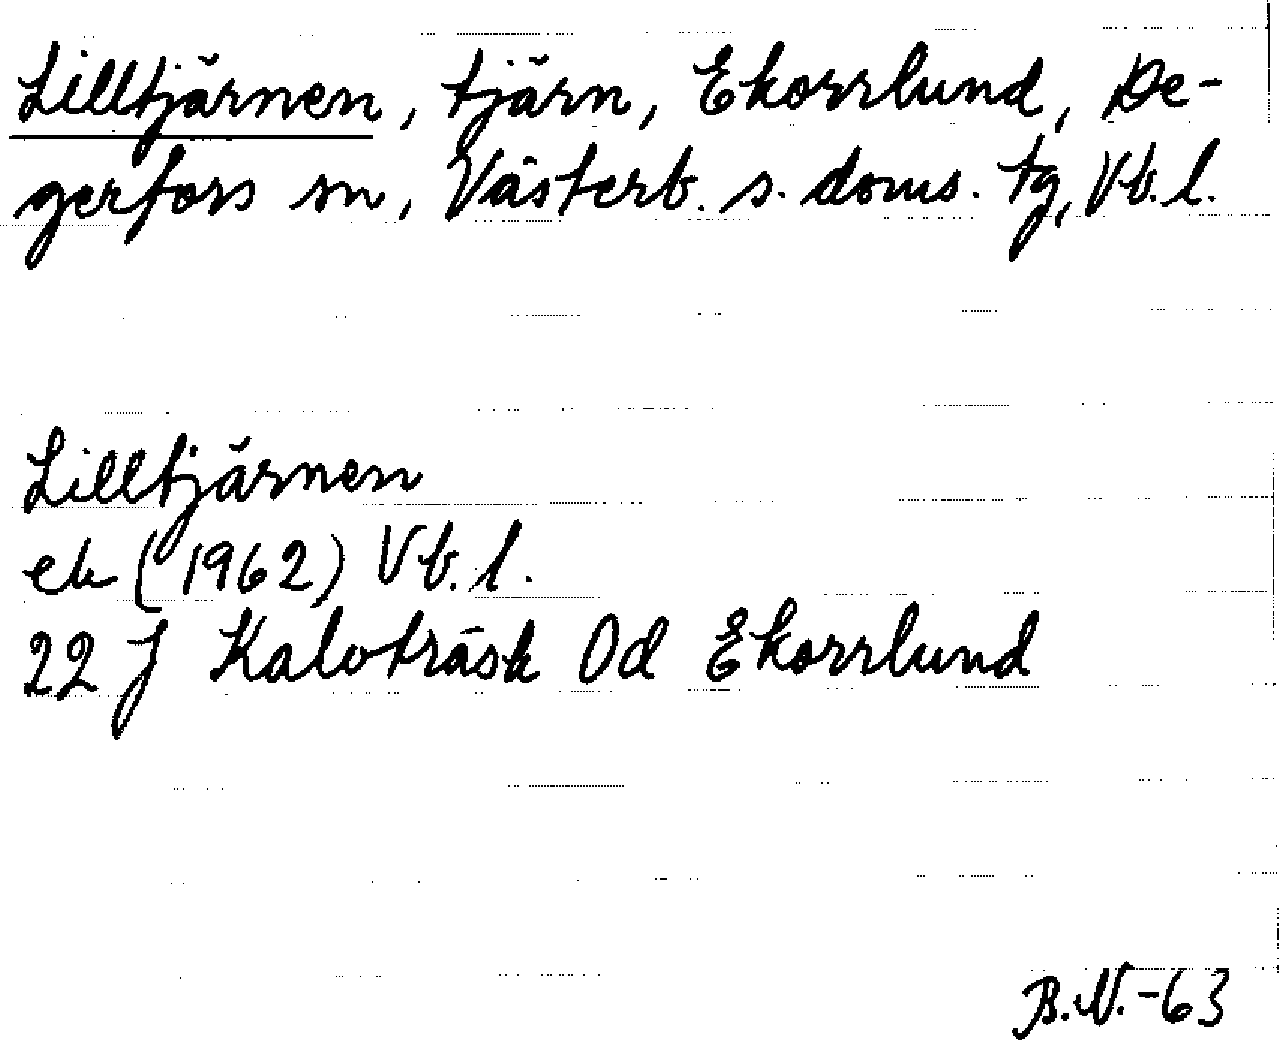 Lilltjärnen, tjärn, Ekorrlund, De-
gerfors sn, Västerb. s. doms. tg, Vb. l.
Lilltjärnen
ek (1962) Vb. l.
22 J Kalvträsk Od Ekorrlund
B.N.-63